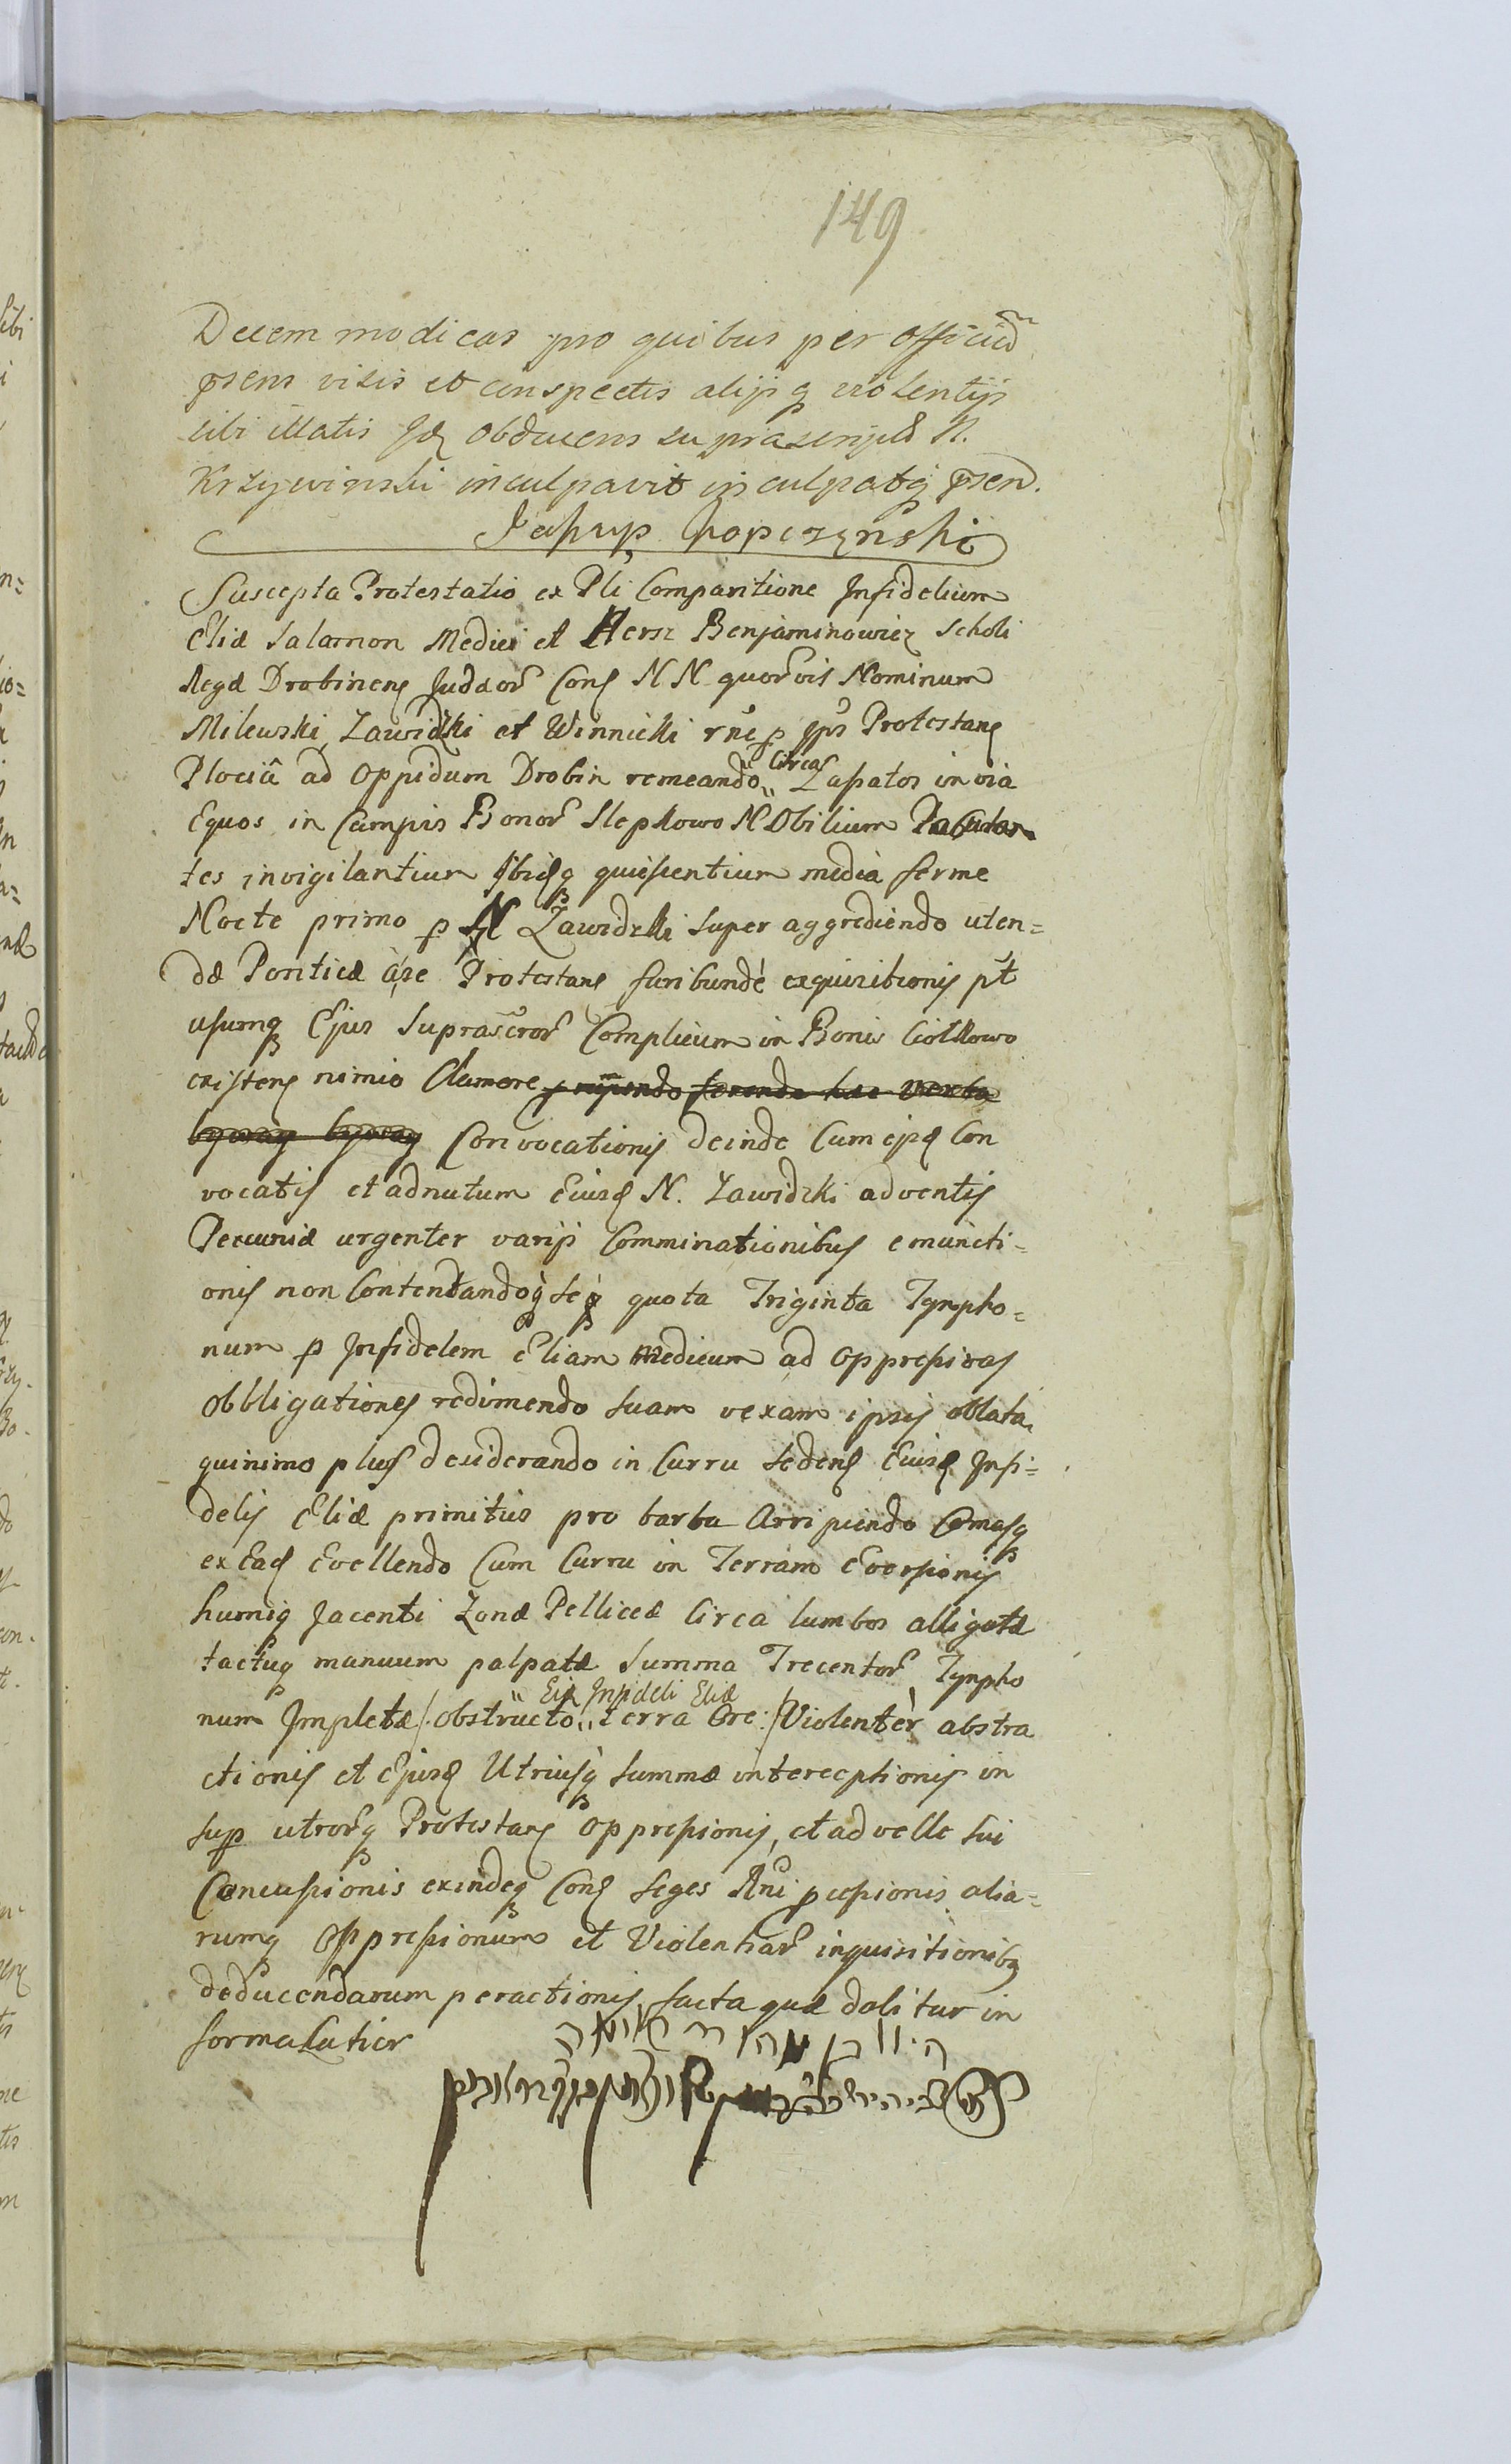 149
Decem modicas pro quibus per officiũ
psens visis et conspectis alijsq violentijs
sibi illatis Jdẽ obducens suprascript N.
Krzywinski inculpavit inculpatq psen.
Suscepta Protestatio ex Pli Comparitione Infidelium
Eliæ Salamon Medici et Hersz Benjaminowicz Scholi
Regæ Drobinens Judæor Cons N N quorvis Nominum
Milewski Zawidzki et Winnicki rne p Protestans
Plociâ ad Oppidum Drobin remeando circa Zapatos in via
Equos in Campis Bonor Slepkowo NObilium Pabulan
tes invigilantium Ibidq quiescentium media ferme
Nocte primo p N Zawidzki super aggrediendo uten=
dæ Ponticæ Protestans furibundè exquisitionis
usumq Ejus Suprascror Complicium in Bonis Ciolkowo
existens nimio Clamore hac verba
Convocationis deinde Cum ejsd Con
vocatis et ad nutum Eiusd N. Zawidzki adventis
Pecuniæ urgenter varijs Comminationibus emuncti=
onis non Contentandoq seq quota Triginta Tympho=
num p Infidelem Eliam Medicum ad oppressivas
obbligationes redimendo suam vexam ipsis oblata,
quinimo plus desiderando in Curru sedens Eiusd Infi=
delis Eliæ primitus pro barba Arripiendo Comasq
ex Ead Evellendo Cum Curru in Terram Eversionis
humiq Jacenti Zonæ Pelliceæ Circa lumbos alligatæ
tactuq manuum palpatæ Summa Trecentor Tympho
num Impletæ /: obstructo Eid Infideli Eliæ terra Ore :/ Violenter abstra
ctionis et Ejusd Utriusq summæ interceptionis in
sup utrorq Protestans oppressionis, et ad velle sui
Concussionis exindeq Cons Reges pcussionis alia=
rumq Oppressionum et Violentiar inquisitionibq
deducendarum peractionis facta quæ dabitur in
forma Latior